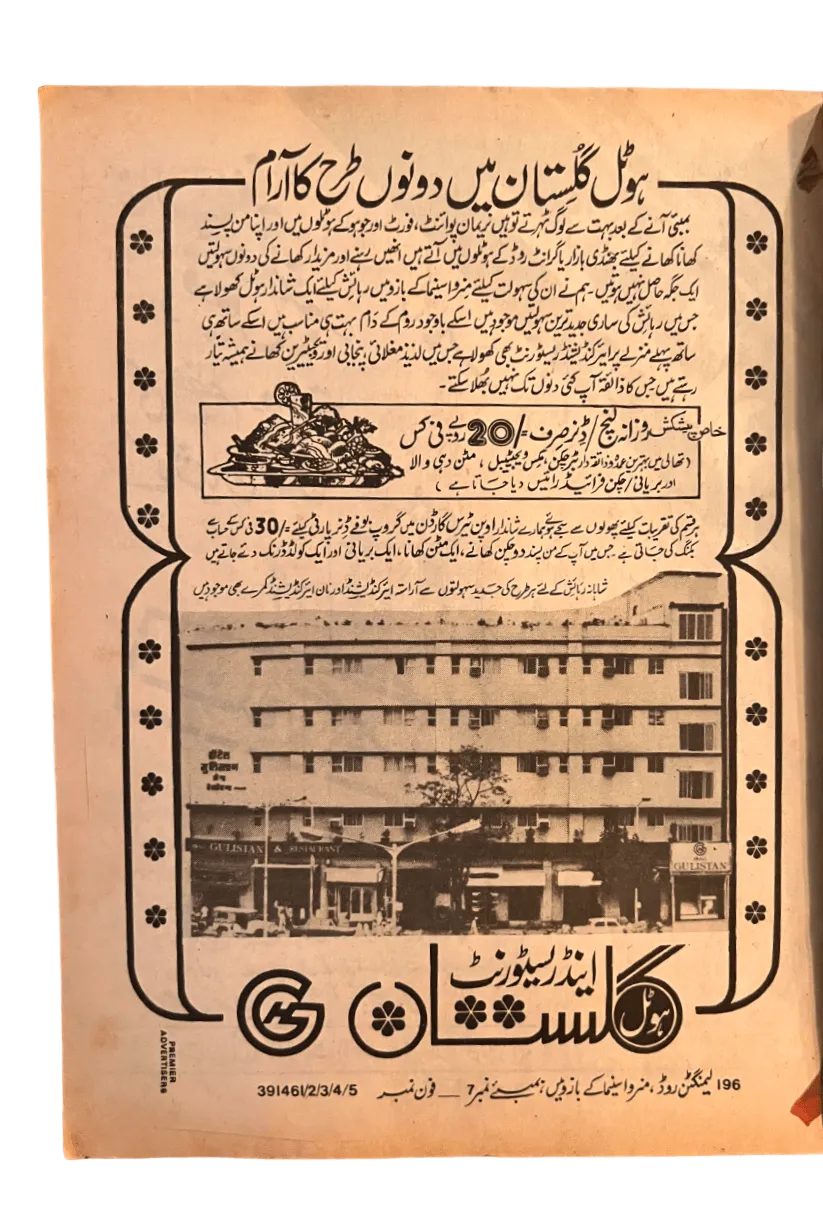 ہوٹل گلستان میں دونوں طرح کا آرام
بمبئی آنے کے بعد بہت سے لوگ ٹھہرتے تو ہیں نریمان پوائنٹ، فورٹ اور جوہو کے ہوٹلوں میں اور اپنا من پسند
کھانا کھانے کیلئے بھنڈی بازار یا گرانٹ روڈ کے ہوٹلوں میں آتے ہیں انھیں رہنے اور مزیدار کھانے کی دونوں سہولتیں
ایک جگہ حاصل نہیں ہوتیں۔ ہم نے ان کی سہولت کیلئے منروا سینما کے بازو میں رہائش کیلئے ایک شاندار ہوٹل کھولا ہے
جس میں رہائش کی ساری جدید ترین سہولتیں موجود ہیں اسکے باوجود روم کے دام بہت ہی مناسب ہیں اسکے ساتھ ہی
ساتھ پہلے منزلے پر ایئرکنڈیشنڈ ریسٹورنٹ بھی کھولا ہے جس میں لذیذ مغلائی، پنجابی اور ویجیٹیرین کھانے ہمیشہ تیار
رہتے ہیں جس کا ذائقہ آپ کئی دنوں تک نہیں بھلا سکتے۔
خاص پیشکش روزانہ لنچ / ڈنر صرف =/20 روپے فی کس
(تھالی میں بہترین عمدہ و ذائقہ دار بٹر چکن، مکس ویجیٹیبل، مٹن دہی والا
اور بریانی / چکن فرائیڈ رائیس دیا جاتا ہے)
ہر قسم کی تقریبات کیلئے پھولوں سے سجے ہوئے ہمارے شاندار اوپن ٹیرس گارڈن میں گروپ بوفے ڈنر پارٹی کیلئے =/30 فی کس کے حساب سے
بکنگ کی جاتی ہے، جس میں آپ کے من پسند دو چکن کھانے، ایک مٹن کھانا، ایک بریانی اور ایک کولڈ ڈرنک دئے جاتے ہیں
شاہانہ رہائش کے لئے ہر طرح کی جدید سہولتوں سے آراستہ ایئرکنڈیشنڈ اور نان ایئرکنڈیشنڈ کمرے بھی موجود ہیں
हॉटेल
गुलिस्तान
GULISTAN & RESTAURANT
GULISTAN
ہوٹل گلستان اینڈ ریسٹورنٹ
GHS
196 لیمنگٹن روڈ، منروا سینما کے بازو میں، بمبئی نمبر 7 — فون نمبر 391461/2/3/4/5
PREMIER
ADVERTISERS